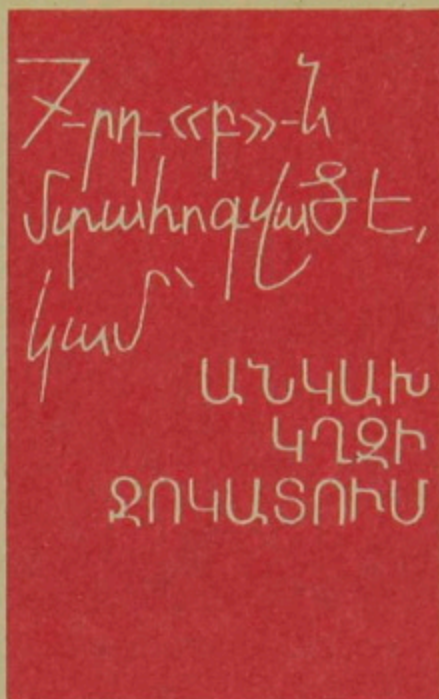 7-րդ «բ»-ն
մտահոգված է,
կամ՝
ԱՆԿԱԽ
ԿՂՋԻ
ՋՈԿԱՏՈՒՄ